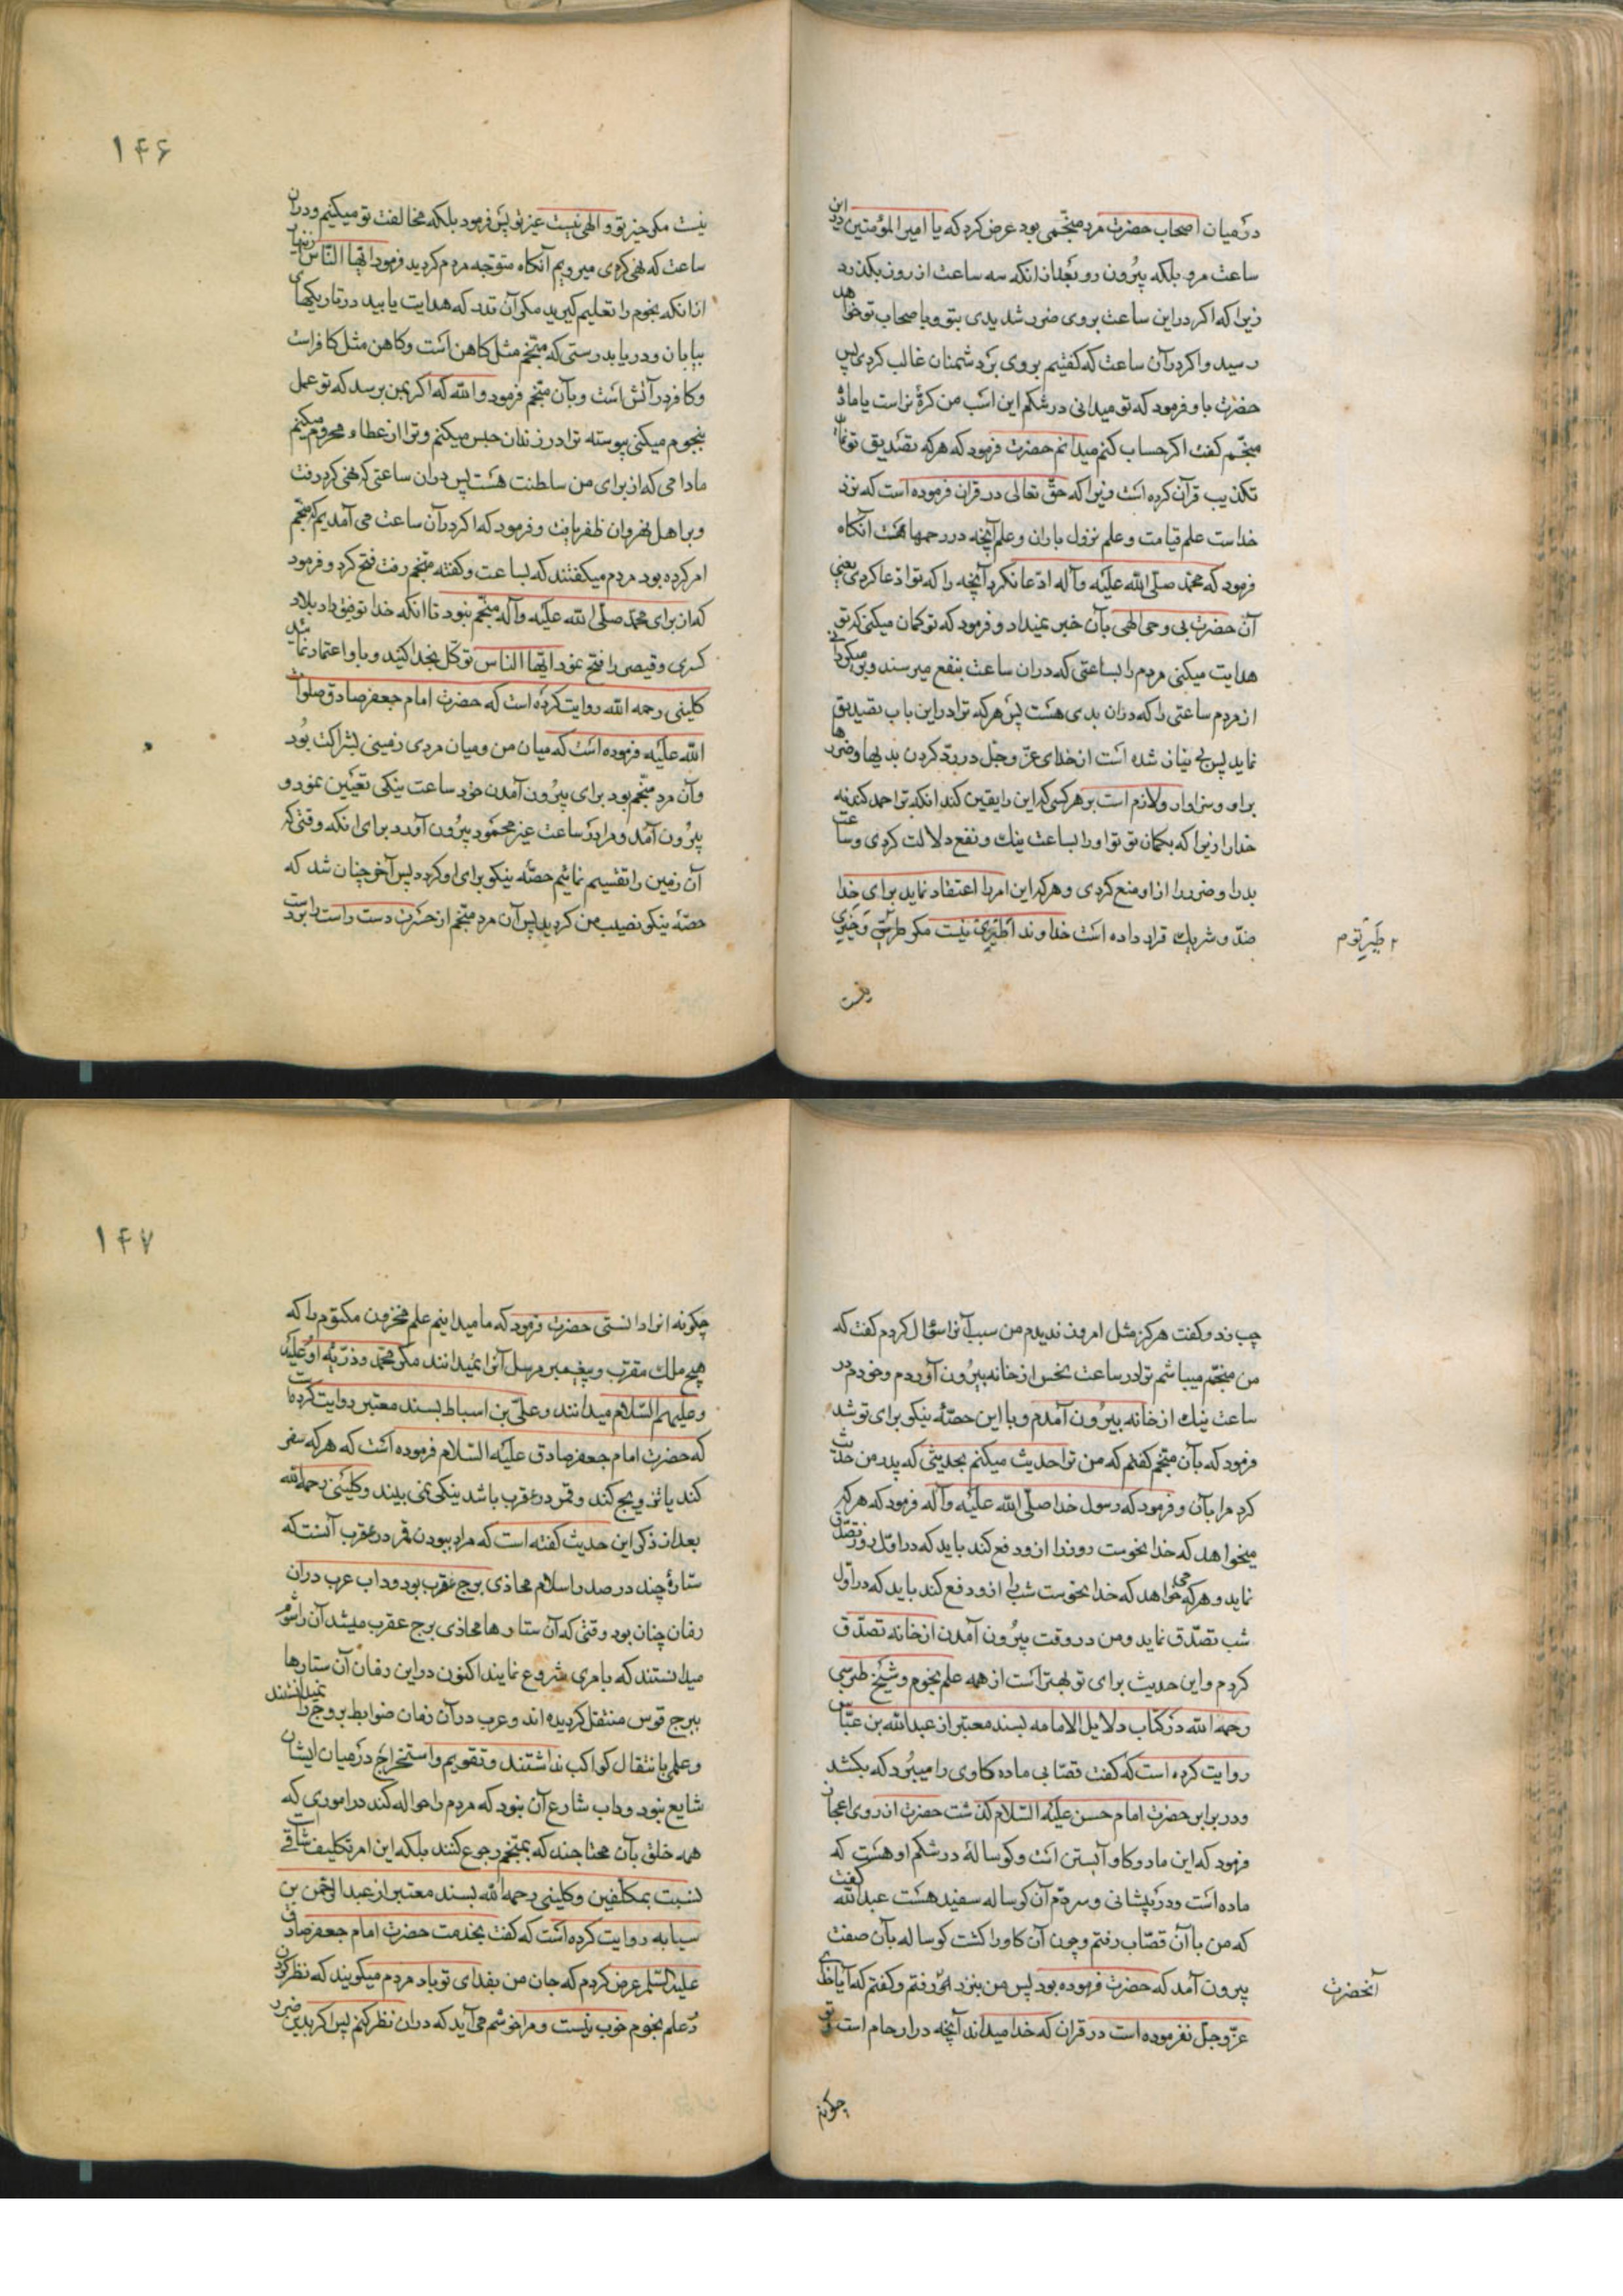 در میان اصحاب حضرت مرد منجّمی بود عرض کرد که یا امیر المؤمنین در این
ساعت مرو بلکه بیرون رو بعد از انکه سه ساعت از روز بکذرد
زیرا که اکر در این ساعت بروی ضرر شدیدی بتو و باصحاب تو خواهد
رسید و اکر در آن ساعت که کفتیم بروی بر دشمنان غالب کردی پس
حضرت باو فرمود که تو میدانی در شکم این اسب من کرّهٔ نر است یا ماده
منجّم کفت اکر حساب کنم میدانم حضرت فرمود که هر که تصدیق تو نماید
تکذیب قرآن کرده است زیرا که حقّ تعالی در قران فرموده است که نزد
خداست علم قیامت و علم نزول باران و علم آنچه در رحمها هست آنکاه
فرمود که محمّد صلّی الله علیه وآله ادّعا نکرد آنچه را که تو ادّعا کردی یعنی
آن حضرت بی وحی الهی بآن خبر نمیداد و فرمود که تو کمان میکنی که تو
هدایت میکنی مردم را بساعتی که در ان ساعت بنفع میرسند و بر میکردانی
از مردم ساعتی را که در ان بدی هست پس هر که ترا در این باب تصدیق
نماید پس بی نیاز شده است از خدای عزّ وجّل در ردّ کردن بدیها و ضررها
براو و سزاوار و لازم است بر هر کسی که این را یقین کند انکه ترا حمد کند نه
خدا را زیرا که بکمان تو تو او را بساعت نیك و نفع دلالت کردی و ساعت
بد را و ضرر را از او منع کردی و هر که این امر را اعتقاد نماید برای خدا
ضدّ و شریك قرار داده است خداوندا طیری نیست مکر طیر تو و خیری
طَیرِ توم
نیست
۱۴۶
نیست مکر خیر تو و الهی نیست غیر تو پس فرمود بلکه مخالفت تو میکنیم و در ان
ساعت که نهی کردی میرویم آنکاه متوجه مردم کردید فرمود ایّها النّاس زنهار
از انکه نجوم را تعلیم کیرید مکر آن قدر که هدایت یابید در تاریکیهای
بیابان و دریا بدرستی که منجّم مثل کاهن است و کاهن مثل کافر است
و کافر در آتش است و بآن منجّم فرمود والله که اکر بمن برسد که تو عمل
بنجوم میکنی پیوسته ترا در زندان حبس میکنم و ترا از عطاء محروم میکنم
مادامی که از برای من سلطنت هست پس در ان ساعتی که نهی کرد رفت
و بر اهل نهروان ظفر یافت و فرمود که اکر در آن ساعت می آمدیم که منجّم
امر کرده بود مردم میکفتند که بساعت و کفته منجّم رفت فتح کرد و فرمود
که از برای محمّد صلّی الله علیه وآله منجّم نبود تا انکه خدا توفیق داد بلاد
کسری و قیصر را فتح نمود ایّها الناس توکّل بخدا کنید و باو اعتماد نمائید
کلینی رحمه الله روایت کرده است که حضرت امام جعفر صادق صلوات
الله علیه فرموده است که میان من و میان مردی زمینی بشراکت بود
وآن مرد منجّم بود برای بیرون آمدن خود ساعت نیکی تعیین نمود و
بیرون آمد و مرا در ساعت غیر محمود بیرون آورد برای انکه وقتی که
آن زمین را تقسیم نمائیم حصّه نیکو برای او کردد پس آخر چنان شد که
حصّهٔ نیکو نصیب من کردید پس آن مرد منجّم از حسرت دست راست را بر دست
چپ زد و کفت هرکز مثل امروز ندیدم من سبب آنرا سؤال کردم کفت که
من منجّم میباشم ترا در ساعت نحس از خانه بیرون آوردم و خود در
ساعت نیك از خانه بیرون آمدم و با این حصّهٔ نیکو برای تو شد
فرمود که بآن منجّم کفتم که من ترا حدیث میکنم بحدیثی که پدر من حدیث
کرد مرا بآن و فرمود که رسول خدا صلّی الله علیه وآله فرمود که هر که
میخواهد که خدا نحوست روز را از و دفع کند باید که در اوّل روز تصدّق
نماید و هر که میخواهد که خدا نحوست شب را از و دفع کند باید که در اوّل
شب تصدّق نماید و من در وقت بیرون آمدن از خانه تصدّق
کردم و این حدیث برای تو بهتر است از همه علم نجوم و شیخ طبرسی
رحمه الله در کتاب دلایل الامامه بسند معتبر از عبدالله بن عبّاس
روایت کرده است که کفت قصّابی ماده کاوی را میبرد که بکشد
و در برابر حضرت امام حسن علیه السّلام کذشت حضرت از روی اعجاز
فرمود که این ماده کاو آبستن است و کوسالهٔ در شکم او هست که
ماده است و در پیشانی و سر دم آن کوساله سفید هست عبدالله کفت
که من با آن قصّاب رفتم و چون آن کاو را کشت کوساله بآن صفت
بیرون آمد که حضرت فرموده بود پس من بنزد او رفتم و کفتم که آیا خدای
آنحضرت
عزّ وجلّ نفرموده است در قران که خدا میداند آنچه در ارحام است تو
چکونه
۱۴۷
چکونه انرا دانستی حضرت فرمود که ما میدانیم علم مخزون مکتوم را که
هیچ ملك مقرب و پیغمبر مرسل آنرا نمیدانند مکر محمّد و ذرّیه او علیه
و علیهم السّلام میدانند و علیّ بن اسباط بسند معتبر روایت کرده است
که حضرت امام جعفر صادق علیه السّلام فرموده است که هر که سفر
کند یا تزویج کند و قمر در عقرب باشد نیکی نمی بیند و کلینی رحمه الله
بعد از ذکر این حدیث کفته است که مراد ببودن قمر در عقرب آنست که
ستارهٔ چند در صدر اسلام محاذی برج عقرب بود و داب عرب در ان
زمان چنان بود وقتی که آن ستارها محاذی برج عقرب میشد آن را شوم
میدانستند که بامری شروع نمایند اکنون در این زمان آن ستارها
ببرج قوس منتقل کردیده اند و عرب در آن زمان ضوابط بروج را نمیدانستند
و علمی بانتقال کواکب نداشتند و تقویم و استخراج در میان ایشان
شایع نبود و داب شارع آن نبود که مردم را حواله کند در اموری که
همه خلق بآن محتاجند که بمنجّم رجوع کنند بلکه این امر تکلیف شاقّی است
نسبت بمکلّفین و کلینی رحمه الله بسند معتبر از عبدالرحمن بن
سیابه روایت کرده است که کفت بخدمت حضرت امام جعفر صادق
علیه السّلم عرض کردم که جان من بفدای تو باد مردم میکویند که نظر کردن
در علم نجوم خوب نیست و مرا خوشم می آید که در ان نظر کنم پس اکر بدین ضرر